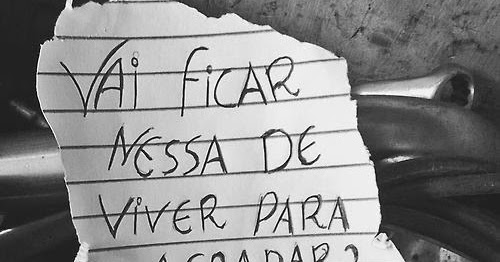 VAi FiCAR
NESSA DE
ViVER PARA
AGRADAR?